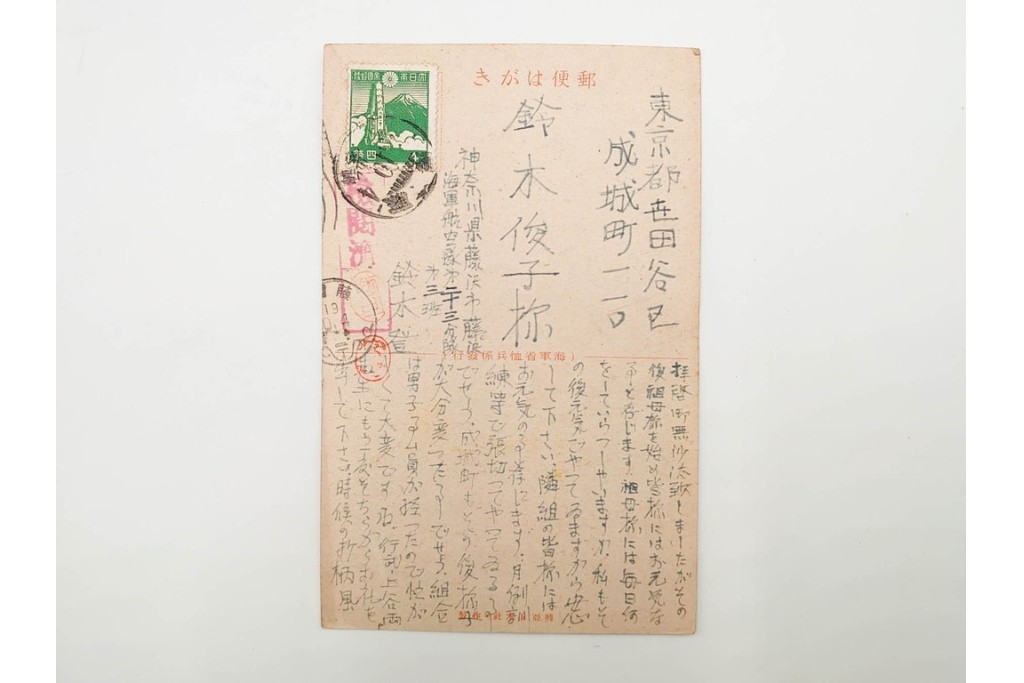 郵便はがき
東京都世田谷区
成城町一一〇
鈴木俊子様
神奈川県藤沢市藤沢
海軍航空隊第二十三分隊
第三班
鈴木登
検閲済
(海軍省恤兵係發行)
拝啓御無沙汰致しましたがその
後祖母様を始め皆様にはお元気な
事と存じます。祖母様には毎日何
をしていらつしやいますか、私もそ
の後元気でやつてゐますから安心
して下さい。隣組の皆様には
お元気の事と存じます。月例
練等で張切つてやつてゐる
でせう。成城町もその後様子
が大分変つた事でせう。組合
は男子の
くて大変ですね。行武、上谷両
先生にもう一度そちらからお礼を
して下さい。時候の折柄風